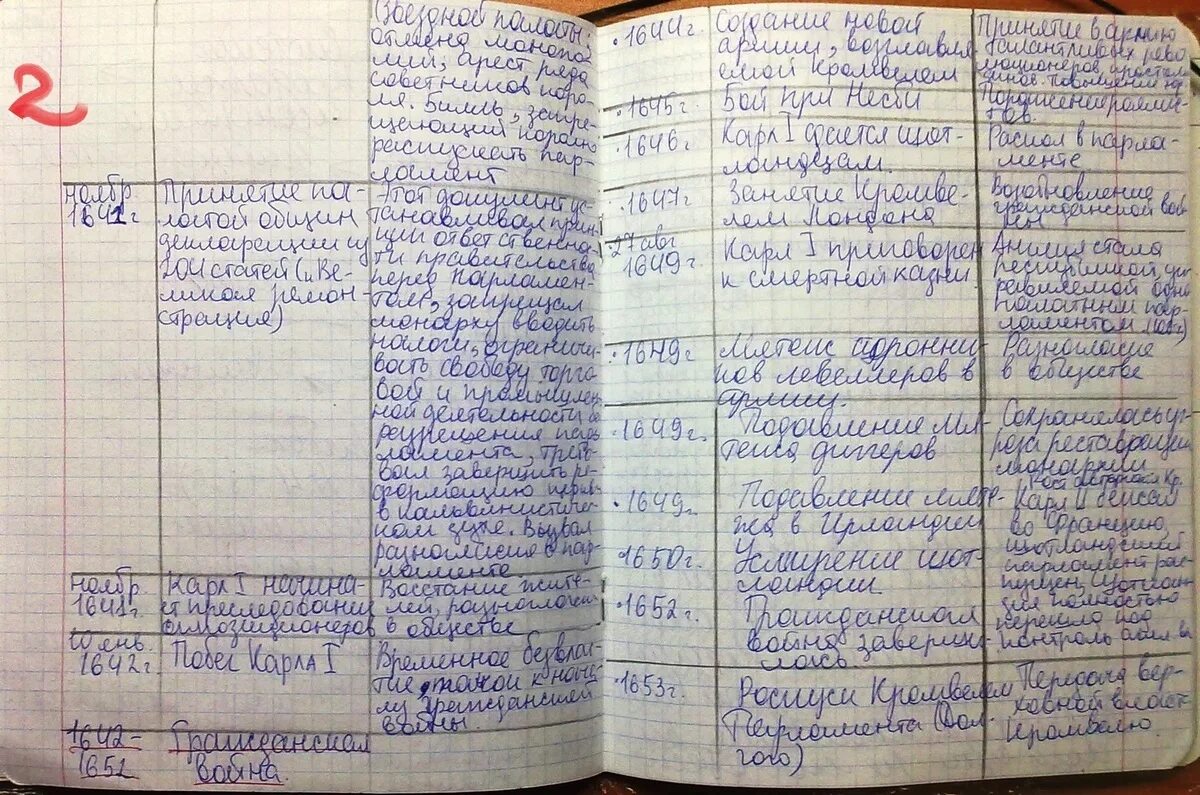 2
Звездной палаты,
отмена монопо-
лий, арест ряда
советников коро-
ля. Билль, запре-
щающий королю
распускать пар-
ламент
ноябр
1641г
Принятие па-
латой общин
декларации из
204 статей („Ве-
ликая ремон-
страция)
Этот документ ус-
танавливал прин-
цип ответственно-
сти правительства
перед парламен-
том, запрещал
монарху вводить
налоги, ограничи-
вать свободу торго-
вой и промышлен-
ной деятельности без
разрешения пар-
ламента, требо-
вал завершить ре-
формацию церкви
в кальвинистичес-
ком духе. Вызвал
разногласие в пар-
ламенте
ноябр
1641г
Карл I начина-
ет преследование
оппозиционеров
Восстание жите-
лей, разногласия
в обществе
10 янв.
1642г.
Побег Карла I
Временное безвлас-
тие, толчок к нача-
лу гражданской
войны.
1642-
1652
Гражданская
война.
1644г.
Создание новой
армии, возглавля-
емой Кромвелем
Принятие в армию
талантливых рево-
люционеров, простол-
динов.
1645г.
Бой при Несби
Поражение роялис-
тов.
1646г.
Карл I сдается шот-
ландцам.
Раскол в парла-
менте
1647г.
Занятие Кромве-
лем Лондона
Возобновление
гражданской вой-
ны
27 авг
1649г.
Карл I приговорен
к смертной казни.
Англия стала
республикой, уп-
равляемой одно-
палатным пар-
ламентом
1649г.
Мятеж сторонни-
ков левеллеров в
армии.
Разногласие
в обществе
1649г.
Подавление мя-
тежа диггеров
Сохранялась уг-
роза реставрации
монархии
1649г.
Подавление мяте-
жа в Ирландии
Рост авторитета Кр.
1650г.
Усмирение шот-
ландии
Карл II бежал
во Францию,
шотландский
парламент рас-
пущен, Шотлан-
дия полностью
перешла под
контроль англ-н
1652г.
Гражданская
война заверши-
лась
1653г.
Роспуск Кромвелем
Парламента (Дол-
гого)
Передача вер-
ховной власти
Кромвелю.